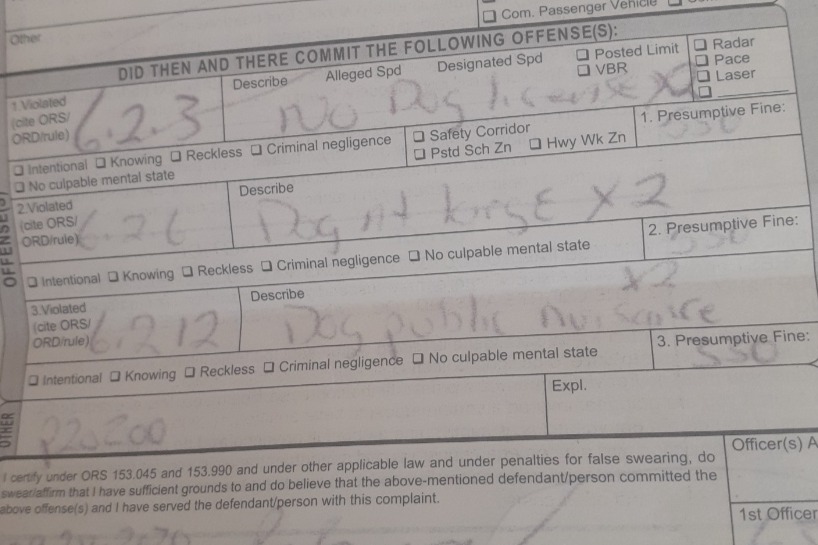 ❑ Com. Passenger Vehicle ❑
Other
DID THEN AND THERE COMMIT THE FOLLOWING OFFENSE(S):
1.Violated
(cite ORS/
ORD/rule)
6.2.3
Describe Alleged Spd Designated Spd ❑ Posted Limit
❑ VBR
❑ Radar
❑ Pace
❑ Laser
❑
No Dog license x2
❑ Intentional ❑ Knowing ❑ Reckless ❑ Criminal negligence
❑ No culpable mental state
❑ Safety Corridor
❑ Pstd Sch Zn ❑ Hwy Wk Zn
1. Presumptive Fine:
OFFENSE(S)
2.Violated
(cite ORS/
ORD/rule)
6.2.6
Describe
Dog At large x2
❑ Intentional ❑ Knowing ❑ Reckless ❑ Criminal negligence ❑ No culpable mental state
2. Presumptive Fine:
3.Violated
(cite ORS/
ORD/rule)
6.2.12
Describe
x2
Dog public nuisance
❑ Intentional ❑ Knowing ❑ Reckless ❑ Criminal negligence ❑ No culpable mental state
3. Presumptive Fine:
OTHER
Expl.
I certify under ORS 153.045 and 153.990 and under other applicable law and under penalties for false swearing, do
swear/affirm that I have sufficient grounds to and do believe that the above-mentioned defendant/person committed the
above offense(s) and I have served the defendant/person with this complaint.
Officer(s) A
1st Officer